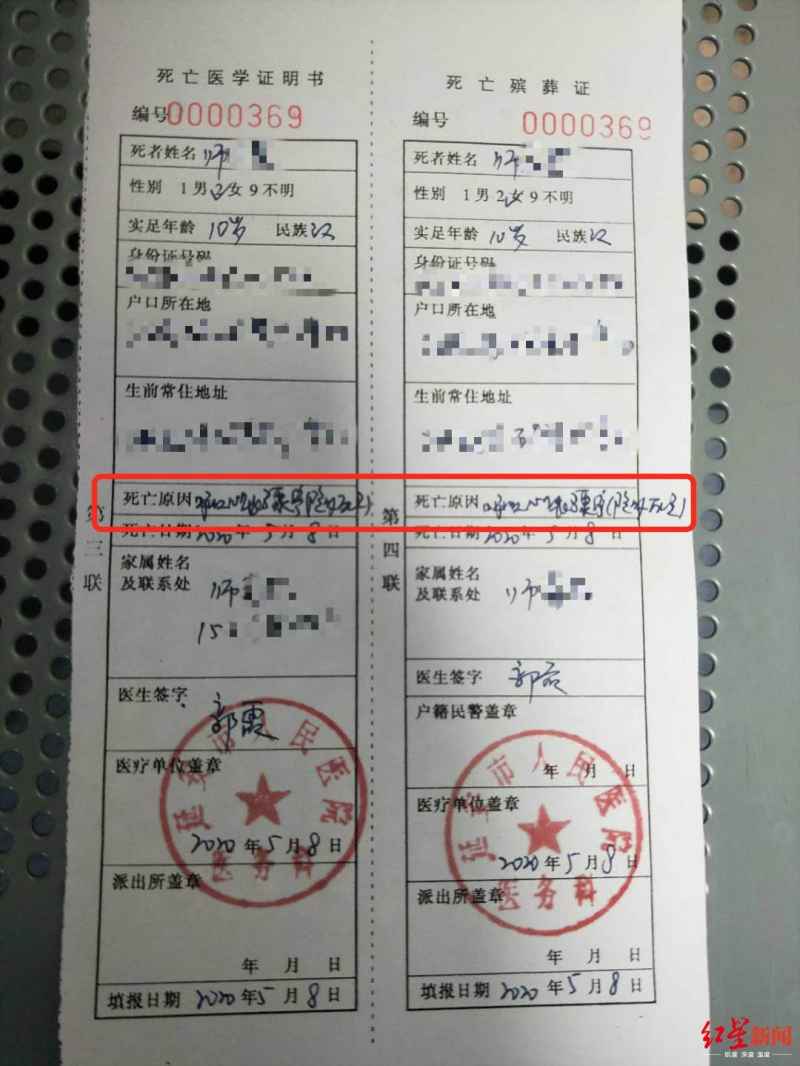 死亡医学证明书
编号0000369
死者姓名 师
性别 1男2女9不明
实足年龄 10岁 民族汉
身份证号码
户口所在地
生前常住地址
死亡原因 呼吸心跳骤停(院外死亡)
死亡日期 2020年5月8日
家属姓名 师
及联系处
15
医生签字 郭霞
医疗单位盖章
延安市人民医院
医务科
2020年5月8日
派出所盖章
年 月 日
填报日期 2020年5月8日
第三联
死亡殡葬证
编号 0000369
死者姓名 师
性别 1男2女9不明
实足年龄 10岁 民族汉
身份证号码
户口所在地
生前常住地址
死亡原因 呼吸心跳骤停(院外死亡)
死亡日期 2020年5月8日
家属姓名
及联系处 师
医生签字 郭霞
户籍民警盖章
年 月 日
医疗单位盖章
延安市人民医院
医务科
2020年5月8日
派出所盖章
年 月 日
填报日期 2020年5月8日
第四联
红星新闻
锐度 深度 温度